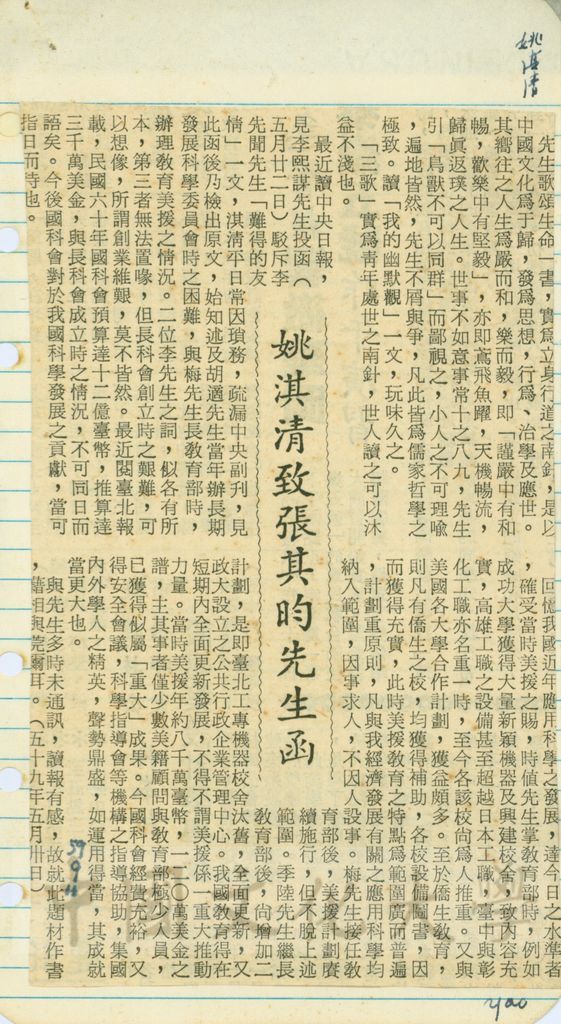 姚淇清
姚淇清致張其昀先生函
先生歌頌生命一書，實為立身行道之南針，是以
中國文化為于歸，發為思想，行為、治學及應世。
其嚮往之人生為嚴而和，樂而毅，即「謹嚴中有和
暢，歡樂中有堅毅」，亦即鳶飛魚躍，天機暢流，
歸眞返璞之人生。世事不如意事常十之八九，先生
引「鳥獸不可以同群」而鄙視之，小人之不可理喩
，遍地皆然，先生不屑與爭，凡此皆爲儒家哲學之
極致。讀「我的幽默觀」一文，玩味久之。
「三歌」實爲靑年處世之南針，世人讀之可以沐
益不淺也。
最近讀中央日報，
見李熙謀先生投函（
五月廿二日）駁斥李
先聞先生「難得的友
情」一文，淇淸平日常因瑣務，疏漏中央副刊，見
此函後乃檢出原文，始知述及胡適先生當年辦長期
發展科學委員會時之困難，與梅先生長教育部時，
辦理教育美援之情況。二位李先生之詞，似各有所
本，第三者無法置喙，但長科會創立時之艱難，可
以想像，所謂創業維艱，莫不皆然。最近閱臺北報
載，民國六十年國科會預算達十二億臺幣，推算達
三千萬美金，與長科會成立時之情況，不可同日而
語矣。今後國科會對於我國科學發展之貢獻，當可
指日而待也。
回憶我國近年應用科學之發展，達今日之水準者
，確受當時美援之賜，時値先生掌教育部時，例如
成功大學獲得大量新穎機器及興建校舍，致內容充
實，高雄工職之設備甚至超越日本工職，臺中與彰
化工職亦名重一時，至今各該校尙爲人推重。又與
美國各大學合作計劃，獲益頗多。至於僑生教育，
則凡有僑生之校，均獲得補助，各校設備圖書，因
而獲得充實，此時美援教育之特點爲範圍廣而普遍
，計劃重原則，凡與我經濟發展有關之應用科學均
納入範圍，因事求人，不因人設事。梅先生接任教
育部後，美援計劃賡
續施行，但不脫上述
範圍。李陸先生繼長
教育部後，尙增加二
計劃，是即臺北工專機器校舍汰舊，全面更新，又
政大設立之公共行政企業管理中心。我國教育得在
短期內全面更新發展，不得不謂美援係一重大推動
力量。當時美援年約八千萬臺幣，一二〇萬美金之
譜，主其事者僅少數美籍顧問與教育部極少人員，
已獲得似屬「重大」成果。今國科會經費充裕，又
得安全會議，科學指導會等機構之指導協助，集國
內外學人之精英，聲勢鼎盛，如運用得當，其成就
當更大也。
與先生多時未通訊，讀報有感，故就此題材作書
，藉相與莞爾耳。（五十九年五月卅日）
59
yao